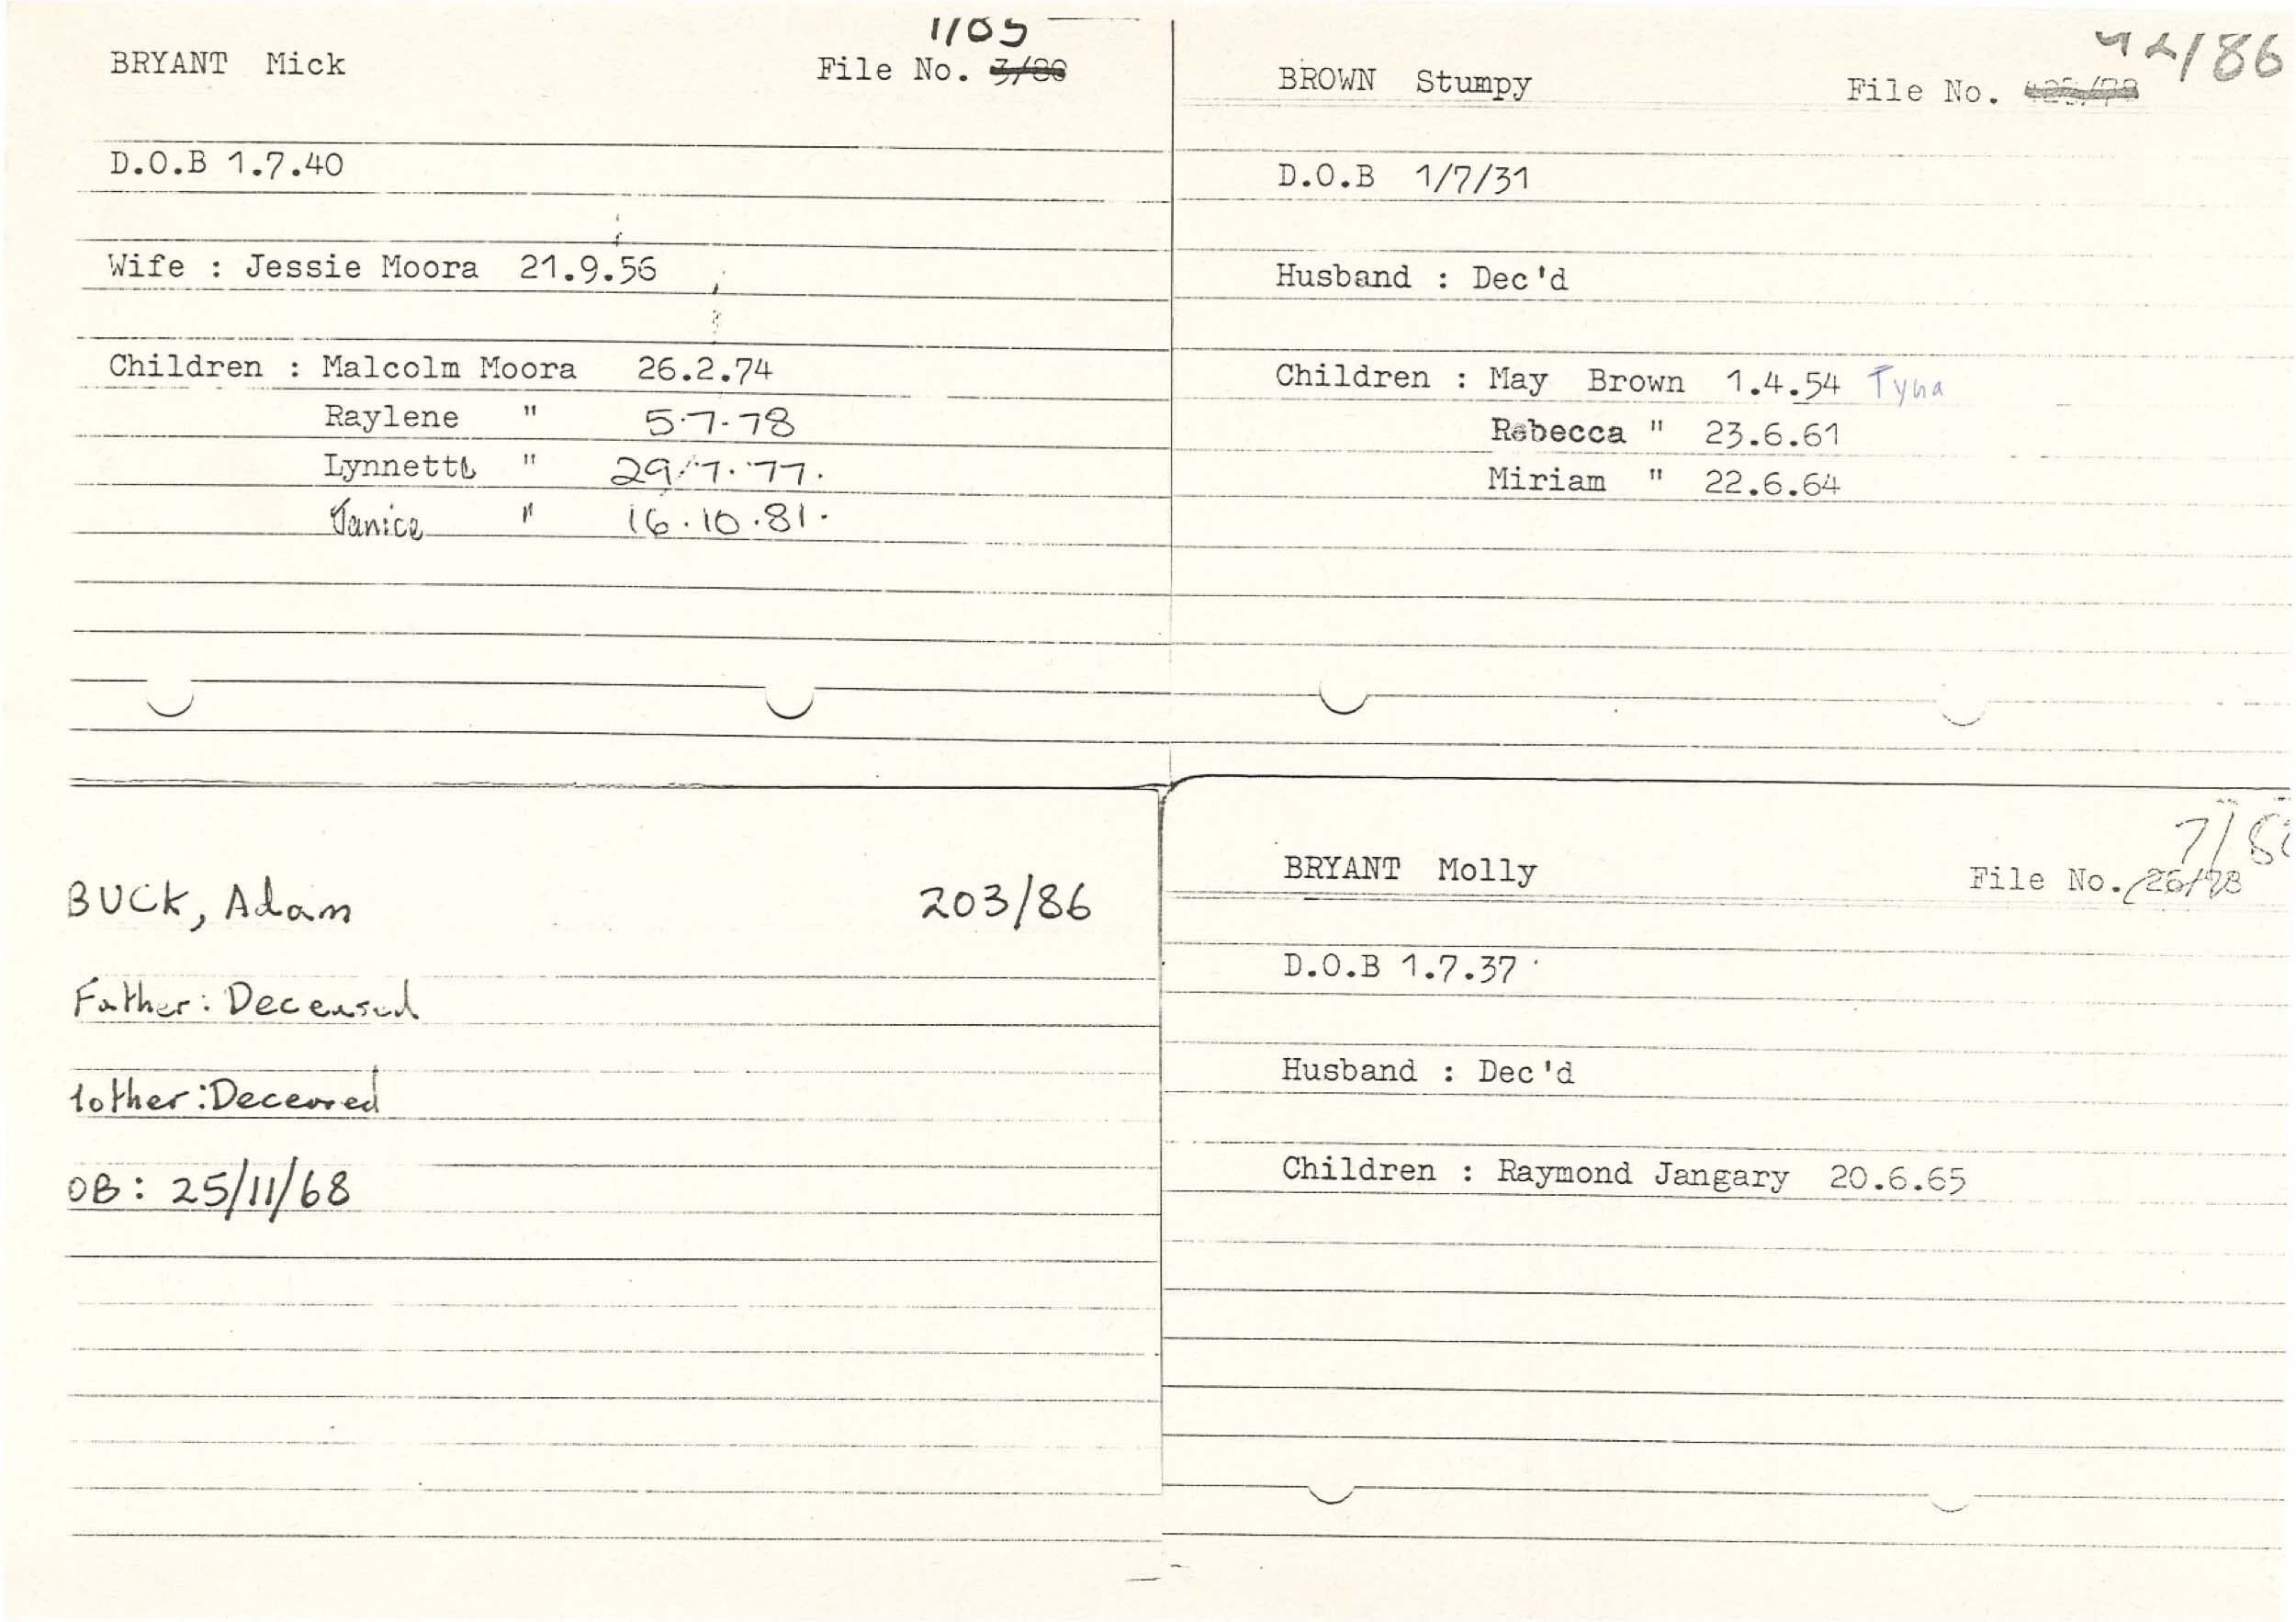 1/85
BRYANT Mick File No. 3/80
D.O.B 1.7.40
Wife : Jessie Moora 21.9.56
Children : Malcolm Moora 26.2.74
Raylene " 5.7.78
Lynnette " 29.7.77.
Janice " 16.10.81.
42/86
BROWN Stumpy File No.
D.O.B 1/7/31
Husband : Dec'd
Children : May Brown 1.4.54 Tyna
Rebecca " 23.6.61
Miriam " 22.6.64
BUCK, Adam 203/86
Father: Deceased
other: Deceased
OB: 25/11/68
7/8
BRYANT Molly File No. 26/78
D.O.B 1.7.37
Husband : Dec'd
Children : Raymond Jangary 20.6.65